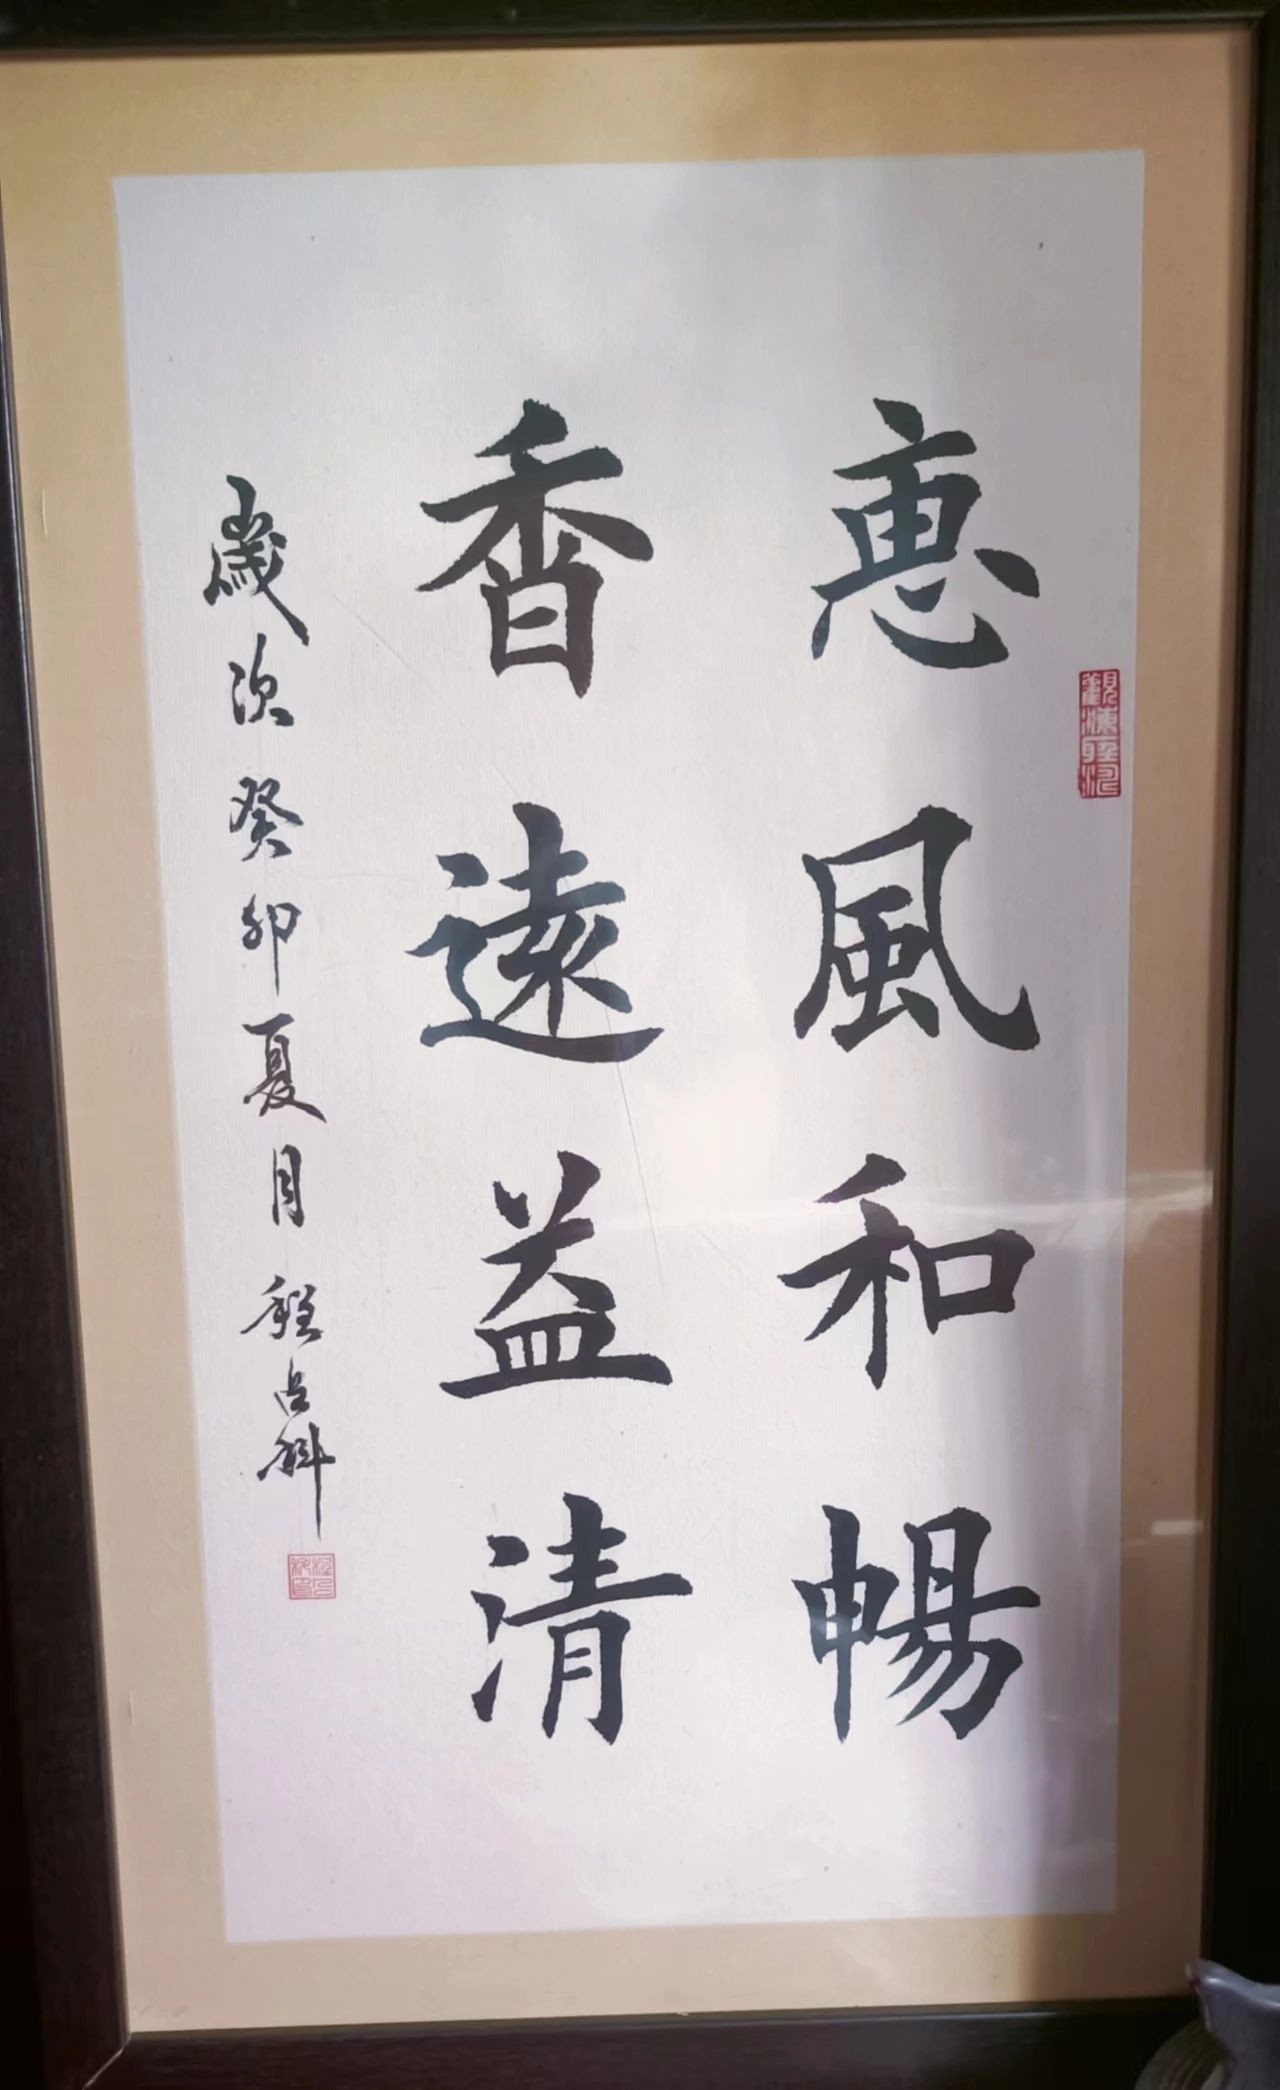 惠風和暢
香遠益清
歲次癸卯夏月程占科